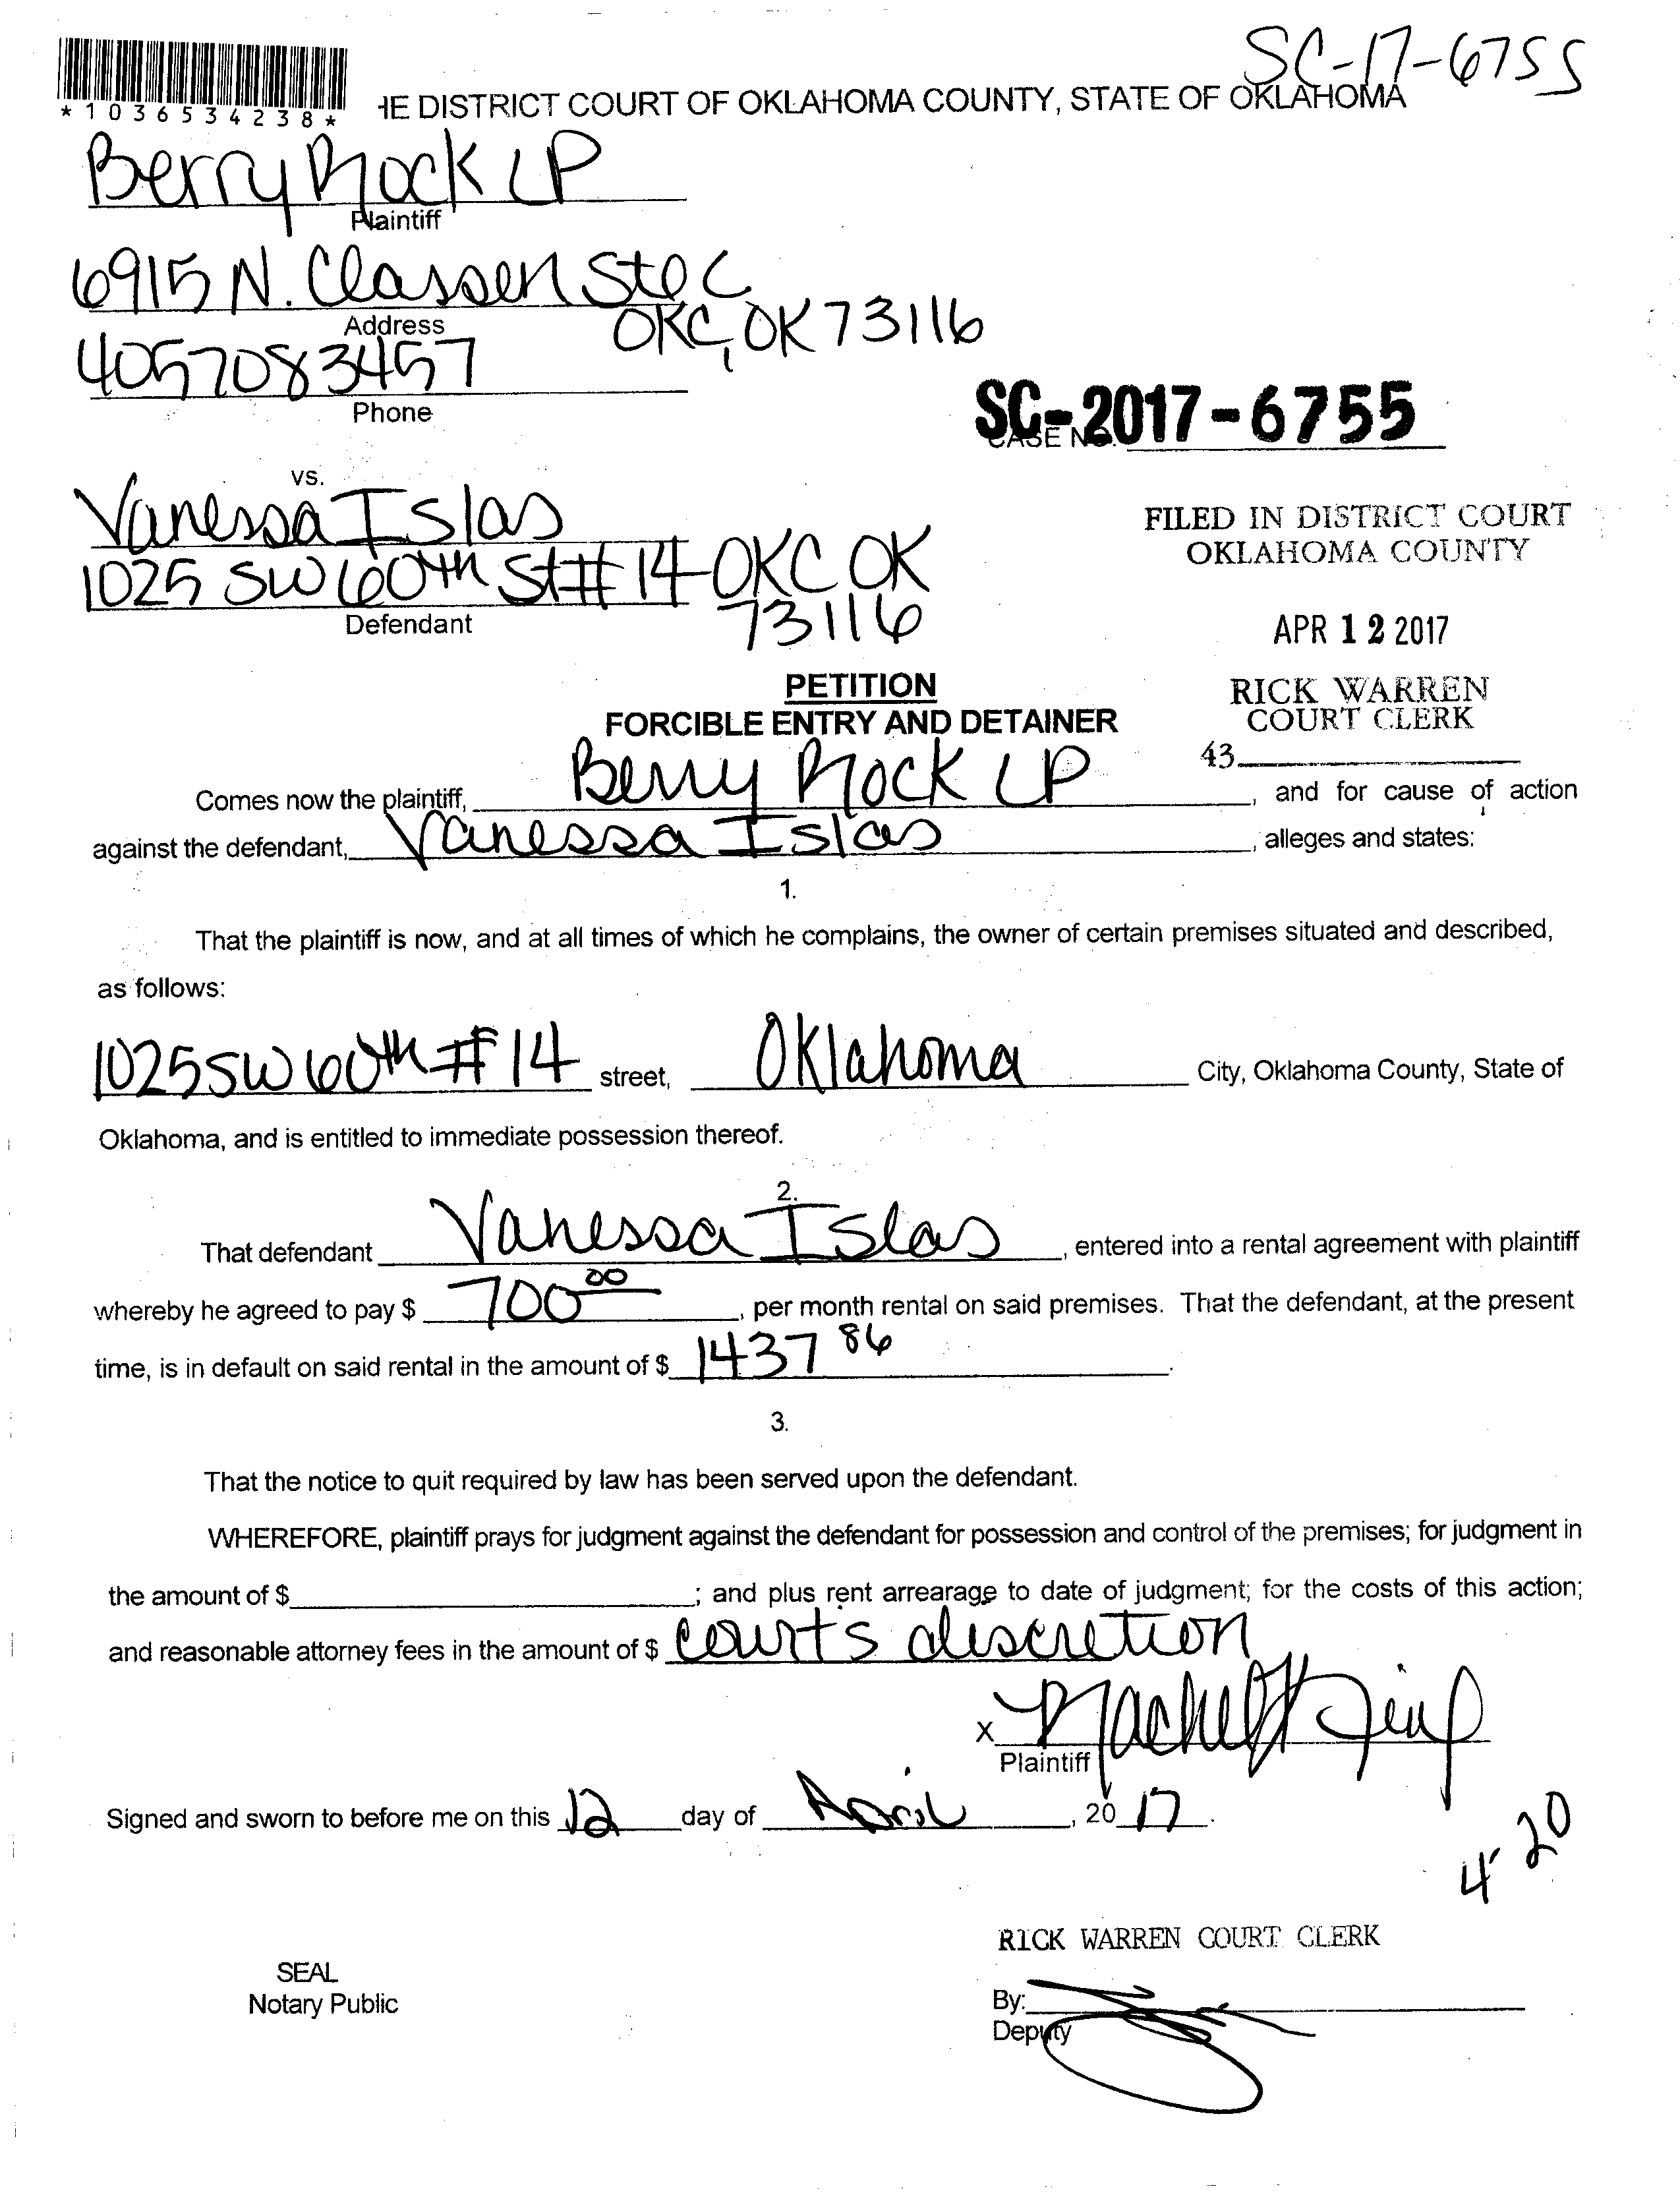 SC-17-6755
*1036534238*
HE DISTRICT COURT OF OKLAHOMA COUNTY, STATE OF OKLAHOMA
Berry Rock LP
Plaintiff
6915 N. Classen Ste C
Address
OKC, OK 73116
4057083457
Phone
SC-2017-6755
CASE NO.
vs.
Vanessa Islas
1025 SW 60th St #14 OKC OK
73116
Defendant
FILED IN DISTRICT COURT
OKLAHOMA COUNTY
APR 12 2017
RICK WARREN
COURT CLERK
43
PETITION
FORCIBLE ENTRY AND DETAINER
Comes now the plaintiff, Berry Rock LP, and for cause of action
against the defendant, Vanessa Islas, alleges and states:
1.
That the plaintiff is now, and at all times of which he complains, the owner of certain premises situated and described,
as follows:
1025 SW 60th #14 street, Oklahoma City, Oklahoma County, State of
Oklahoma, and is entitled to immediate possession thereof.
2.
That defendant Vanessa Islas, entered into a rental agreement with plaintiff
whereby he agreed to pay $ 700 00, per month rental on said premises. That the defendant, at the present
time, is in default on said rental in the amount of $ 1437 86.
3.
That the notice to quit required by law has been served upon the defendant.
WHEREFORE, plaintiff prays for judgment against the defendant for possession and control of the premises; for judgment in
the amount of $ ; and plus rent arrearage to date of judgment; for the costs of this action;
and reasonable attorney fees in the amount of $ courts discretion
X Rachel
Plaintiff
Signed and sworn to before me on this 12 day of April, 20 17.
4-20
RICK WARREN COURT CLERK
SEAL
Notary Public
By:
Deputy